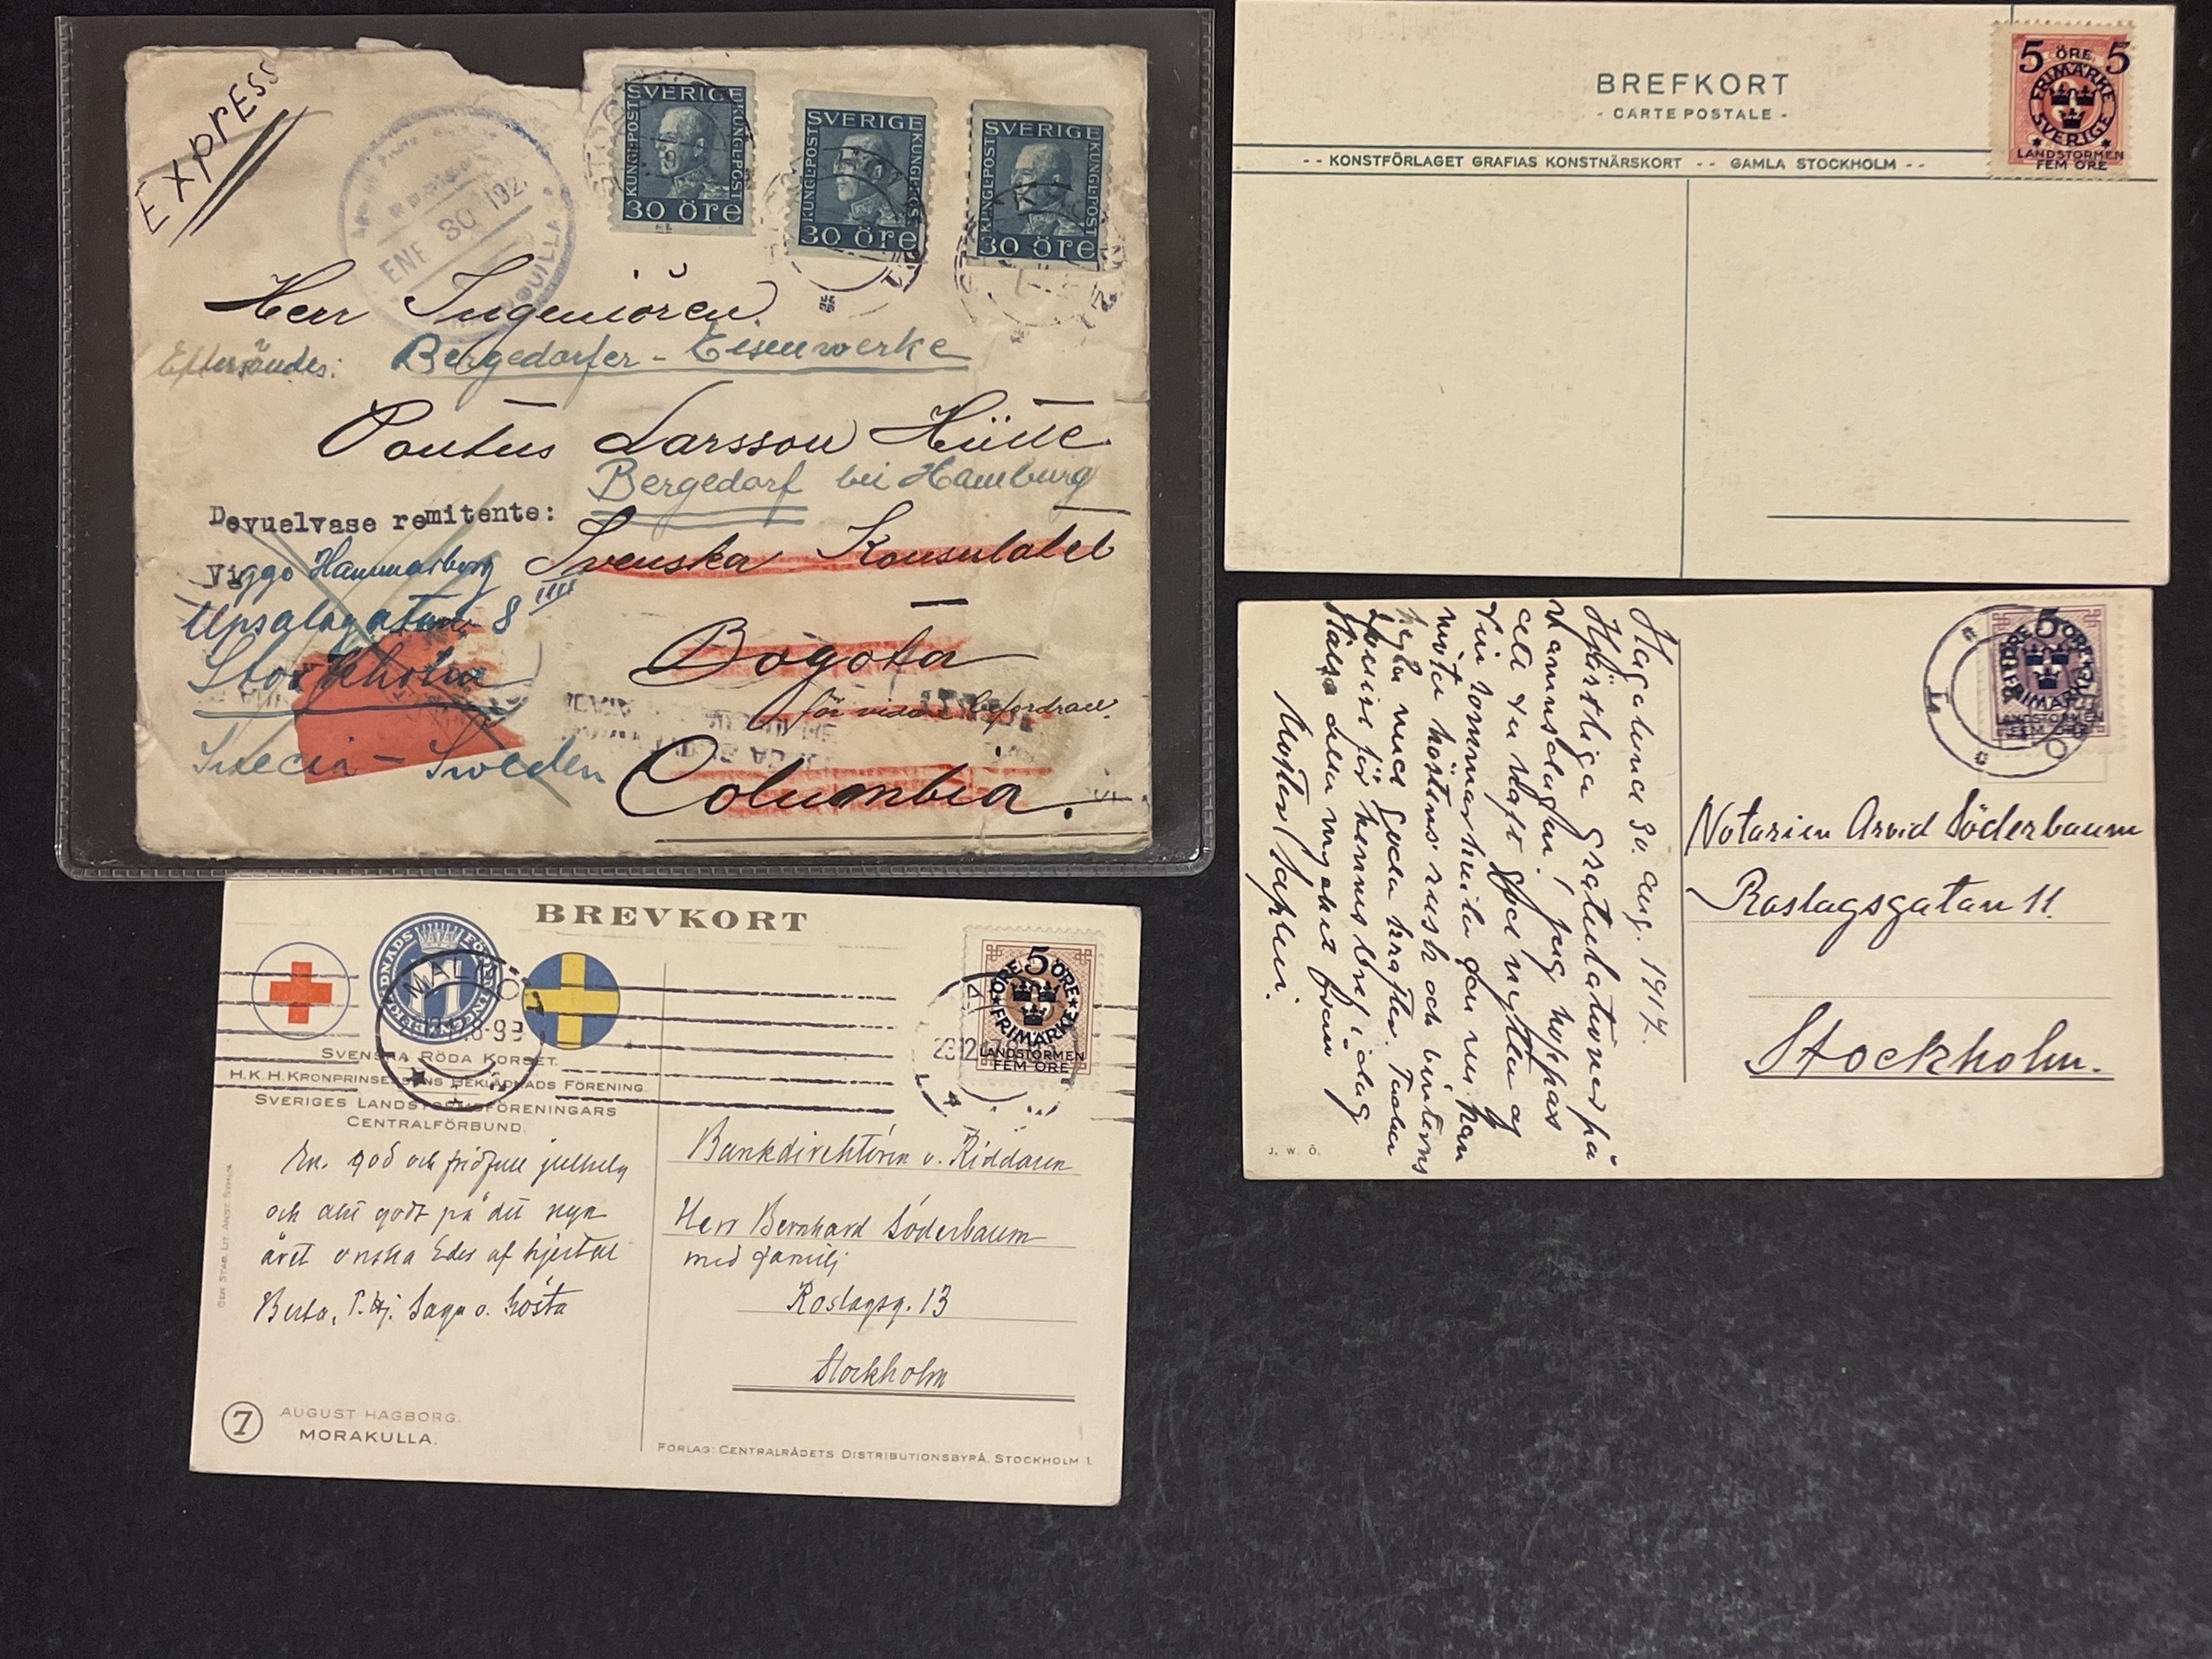 Express
ENE 30 192
SVERIGE
KUNGL·POST
KUNGL·POST
30 öre
SVERIGE
KUNGL·POST
KUNGL·POST
30 öre
SVERIGE
KUNGL·POST
KUNGL·POST
30 öre
Herr Ingeniören
Eftersändes: Bergedorfer - Eisenwerke
Pontus Larsson Hütte
Bergedorf bei Hamburg
Devuelvase remitente:
Viggo Hammarberg
Svenska Konsulatet
Upsalagatan 8 III
Stockholm
Bogota
för vidare befordran.
Suecia - Sweden
Columbia.
BREFKORT
- CARTE POSTALE -
-- KONSTFÖRLAGET GRAFIAS KONSTNÄRSKORT -- GAMLA STOCKHOLM --
5 ÖRE 5
FRIMÄRKE
SVERIGE
LANDSTORMEN
FEM ÖRE
Hagalund 30. aug. 1917.
Hjärtliga gratulationer på
namnsdagen! Jag hoppas
att du haft
din sommarhvila
höstens rusk och vinterns
med goda krafter. Tackar
för hennes bref idag
Moster Sophie.
J. W. Ö.
5
ÖRE ÖRE
FRIMÄRKE
LANDSTORMEN
FEM ÖRE
Notarien Arvid Söderbaum
Roslagsgatan 11.
Stockholm.
BREVKORT
MALMÖ
SVENSKA RÖDA KORSET.
H.K.H. KRONPRINSESSANS BEKLÄDNADS FÖRENING.
SVERIGES LANDSTORMSFÖRENINGARS
CENTRALFÖRBUND.
5
ÖRE ÖRE
FRIMÄRKE
LANDSTORMEN
FEM ÖRE
En god och fridfull julhelg
och allt godt på det nya
året önska Eder af hjertat
Berta, T. Hj. Saga o. Gösta
Bankdirektören o. Riddaren
Herr Bernhard Söderbaum
med familj
Roslagsg. 13
Stockholm
GEN. STAB. LIT. ANST. STHLM.
7
AUGUST HAGBORG.
MORAKULLA.
FÖRLAG: CENTRALRÅDETS DISTRIBUTIONSBYRÅ, STOCKHOLM 1.